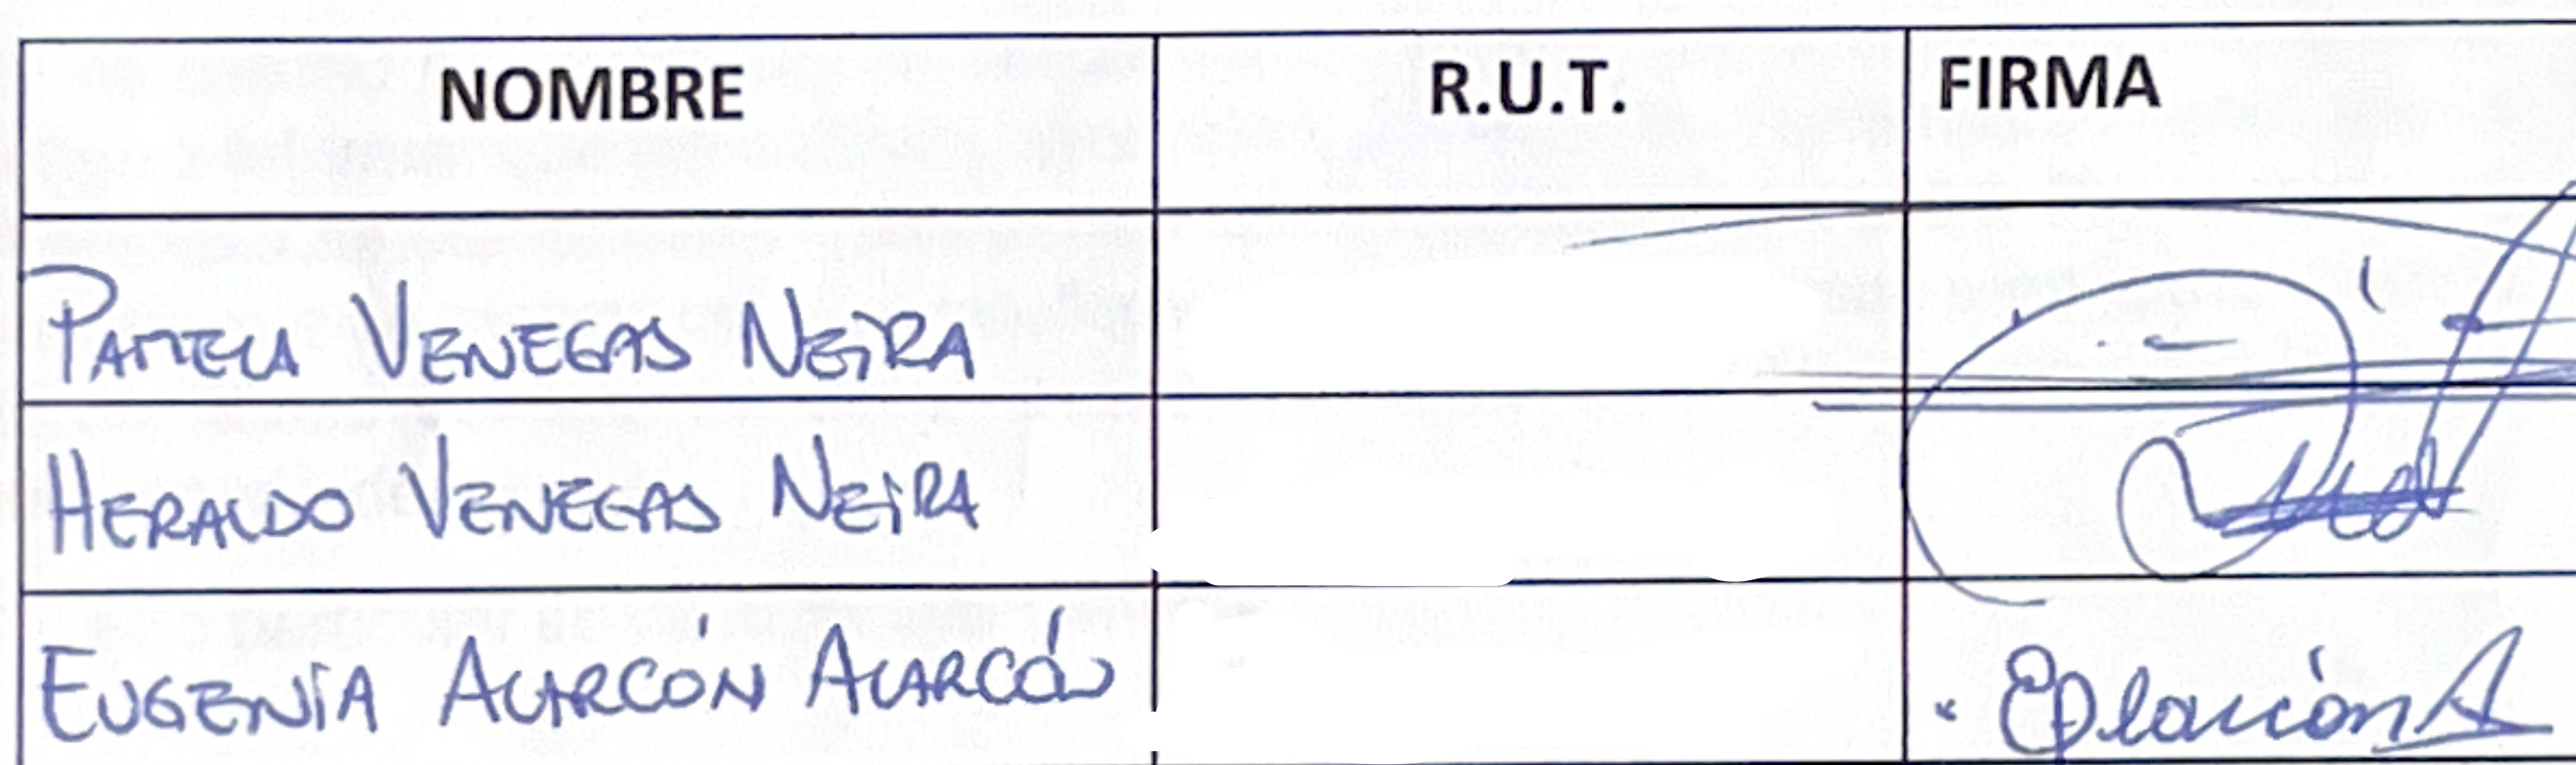 NOMBRE R.U.T. FIRMA
PAMELA VENEGAS NEIRA
HERALDO VENEGAS NEIRA
EUGENIA ALARCÓN ALARCÓN